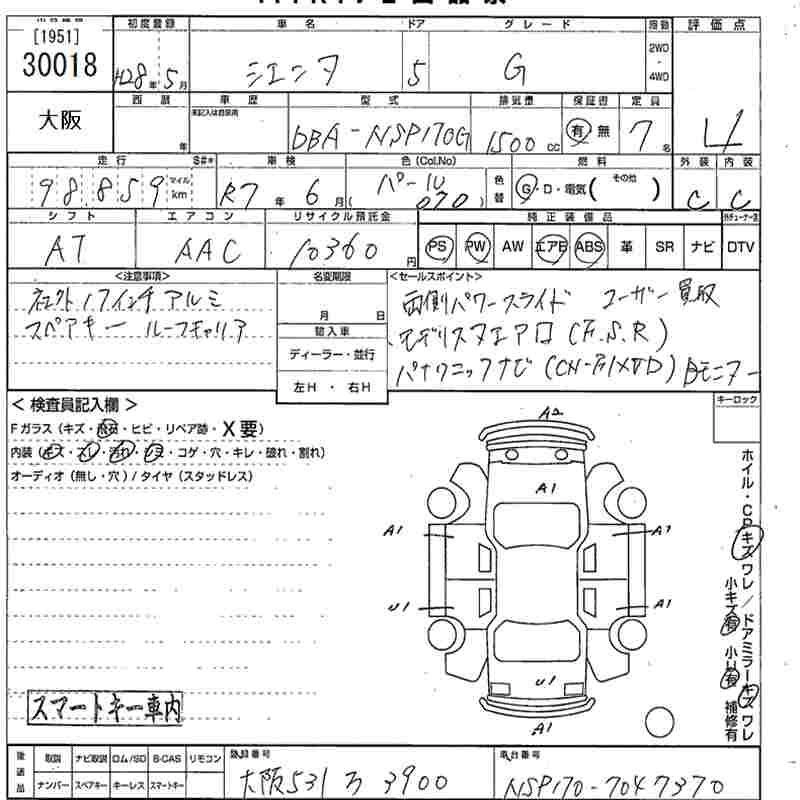 [1951]
30018
大阪
初度登録
H28年5月
車名
シエンタ
ドア
5
グレード
G
駆動
2WD
・
4WD
評価点
4
西暦
年
車歴
未記入は自家用
型式
DBA-NSP170G
排気量
1500cc
保証書
有 無
定員
7名
走行
98,859
マイル
km
S#*
車検
R7年6月
色(Col.No)
パール
(070)
色替
燃料
G・D・電気( その他 )
外装
C
内装
C
シフト
AT
エアコン
AAC
リサイクル預託金
10360円
純正装備品
PS PW AW エアB ABS 革 SR ナビ DTV
<注意事項>
社外17インチアルミ
スペアキー ルーフキャリア
名変期限
月 日
輸入車
ディーラー・並行
左H・右H
<セールスポイント>
両側パワースライド ユーザー買取
モデリスタエアロ(F.S.R)
パナソニックナビ(CN-F1XVD) Bモニター
キーロック
<検査員記入欄>
Fガラス(キズ・飛石・ヒビ・リペア跡・X要)
内装(キズ・スレ・汚れ・シミ・コゲ・穴・キレ・破れ・割れ)
オーディオ(無し・穴)/タイヤ(スタッドレス)
A2
A1
A1
A1
U1
A1
U1
A1
ホイル・CPキズワレ/ドアミラーキズワレ
小キズ有 小U有 補修有
スマートキー車内
後送品
取説 ナビ取説 ロム/SD B-CAS リモコン
ナンバー スペアキー キーレス スマートキー
登録番号
大阪531 ろ 3900
車台番号
NSP170-7047370